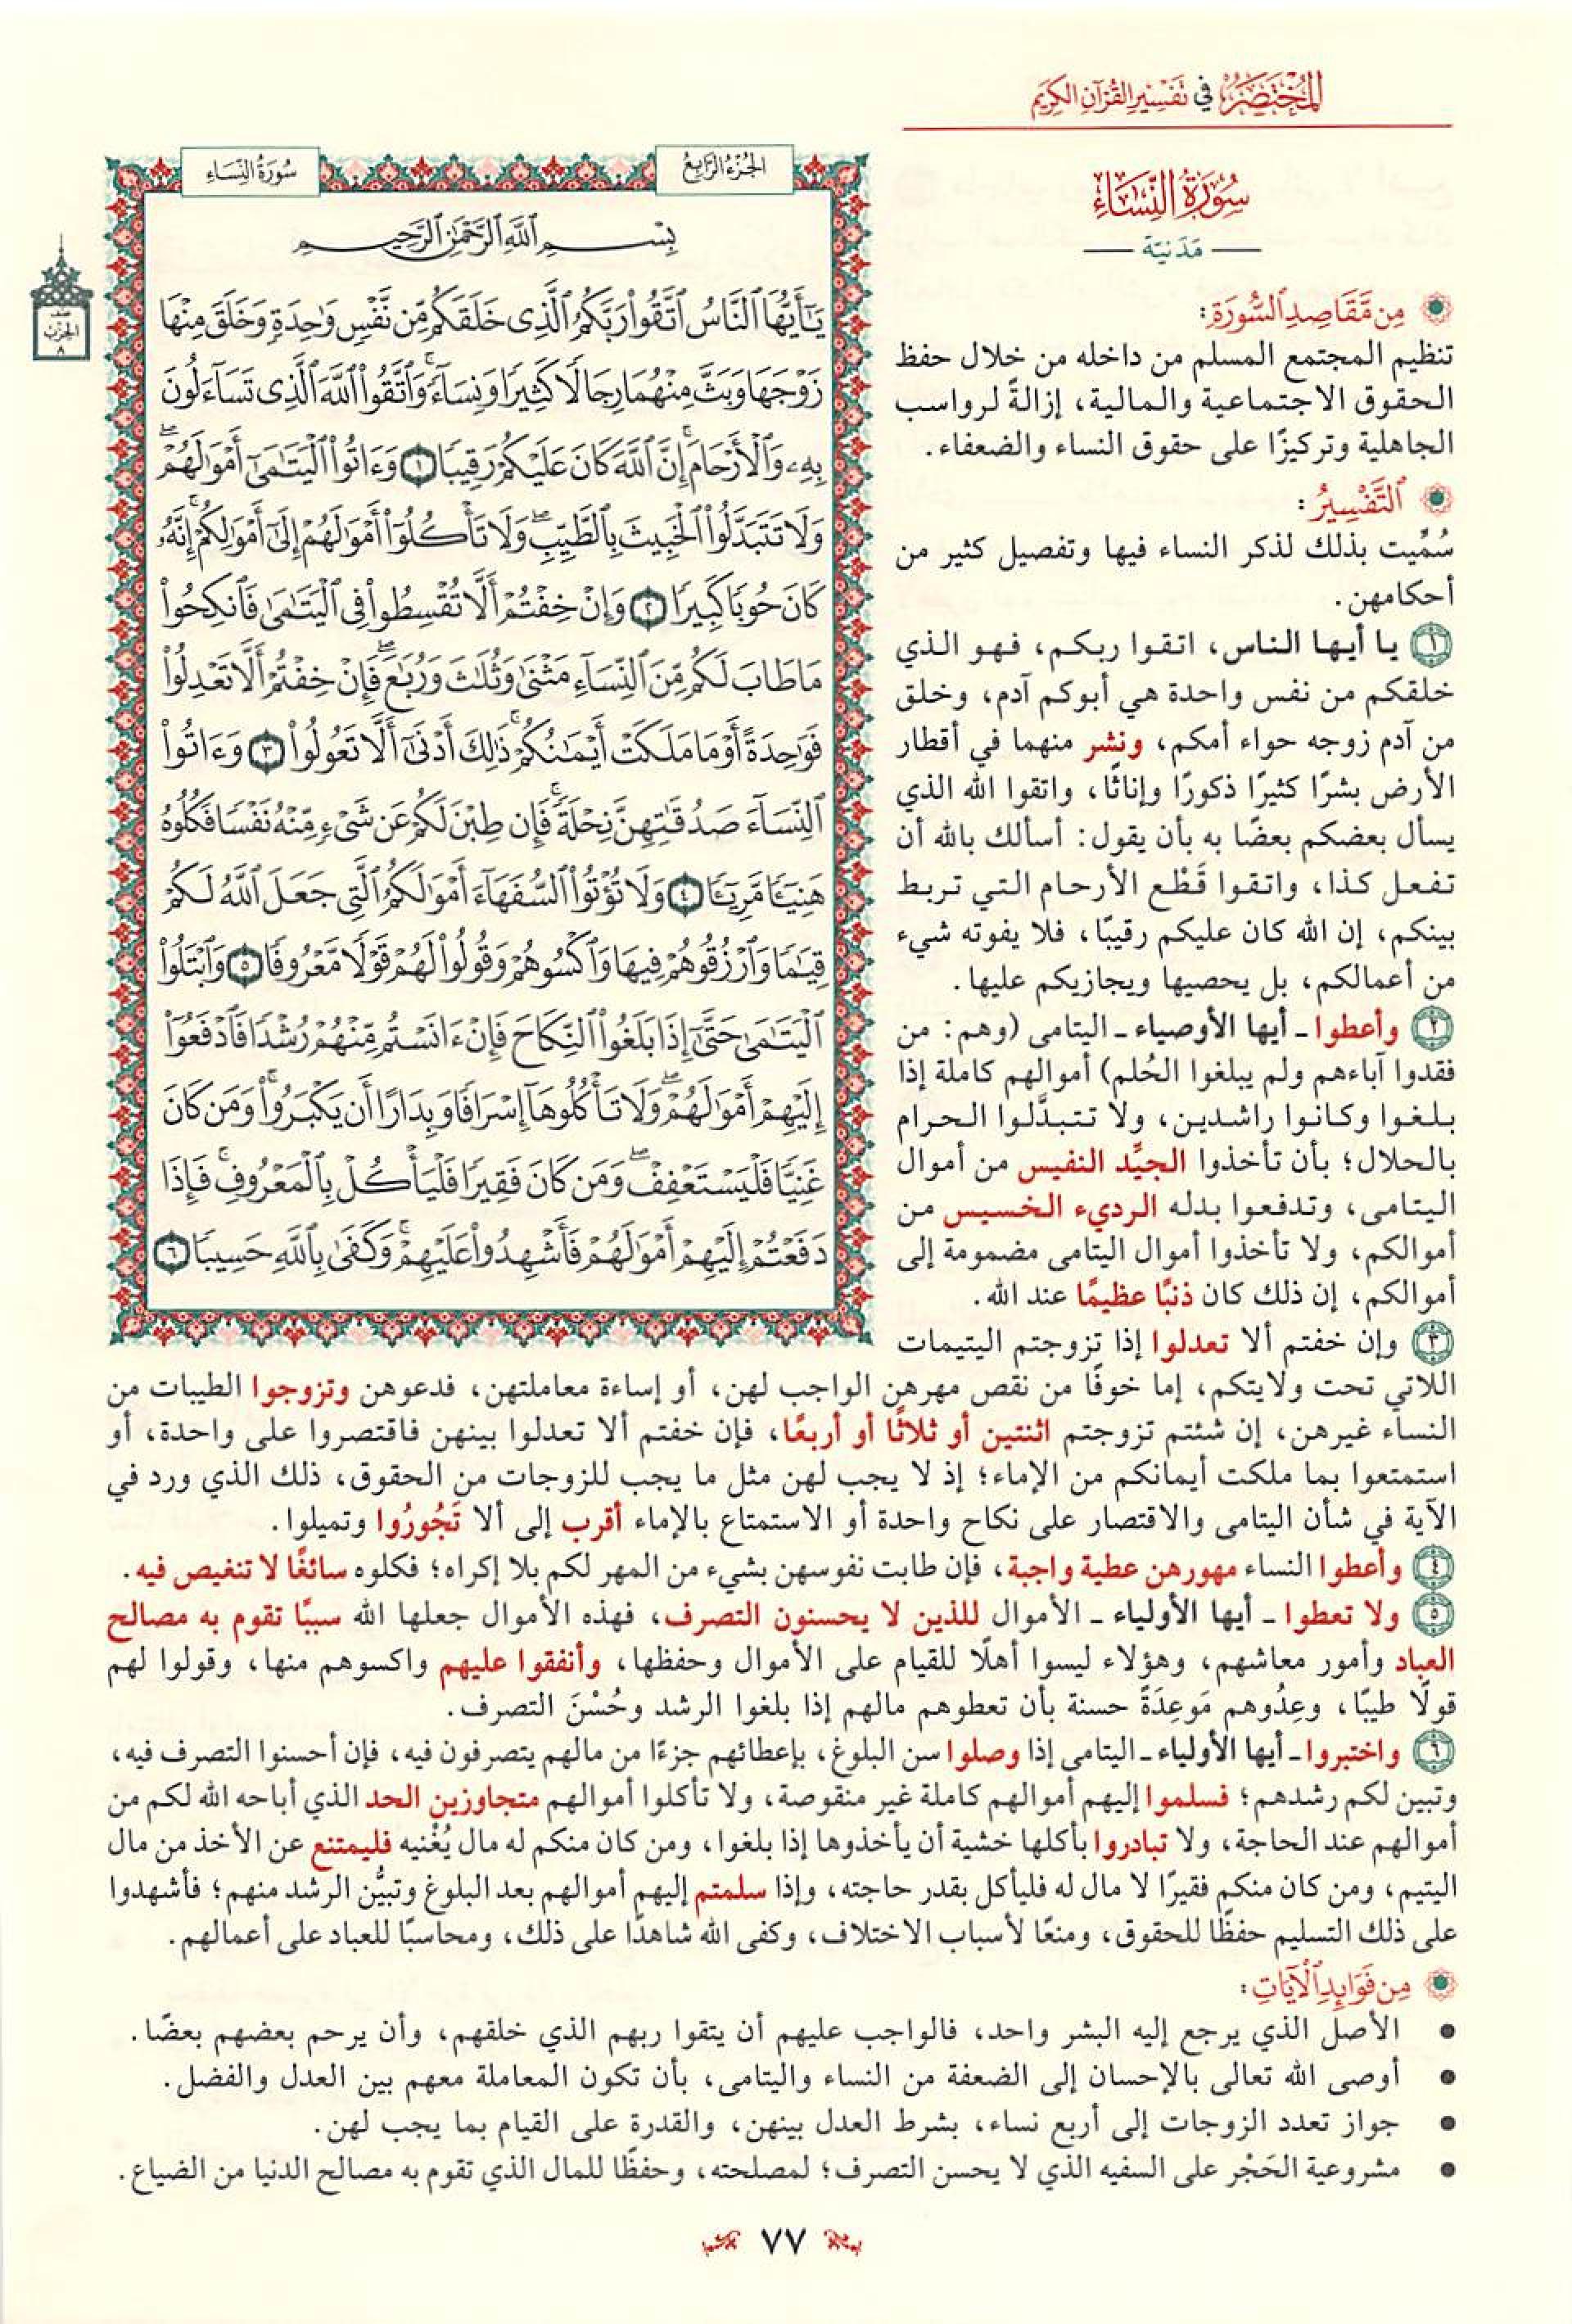 المختصر في تفسير القرآن الكريم
سُورَةُ النِّسَاءِ
مَدَنيّة
مِن مَّقَاصِدِ السُّورَةِ:
تنظيم المجتمع المسلم من داخله من خلال حفظ
الحقوق الاجتماعية والمالية، إزالةً لرواسب
الجاهلية وتركيزًا على حقوق النساء والضعفاء.
التَّفْسِيرُ:
سُمِّيت بذلك لذكر النساء فيها وتفصيل كثير من
أحكامهن.
١ يا أيها الناس، اتقوا ربكم، فهو الذي
خلقكم من نفس واحدة هي أبوكم آدم، وخلق
من آدم زوجه حواء أمكم، ونشر منهما في أقطار
الأرض بشرًا كثيرًا ذكورًا وإناثًا، واتقوا الله الذي
يسأل بعضكم بعضًا به بأن يقول: أسألك بالله أن
تفعل كذا، واتقوا قَطْع الأرحام التي تربط
بينكم، إن الله كان عليكم رقيبًا، فلا يفوته شيء
من أعمالكم، بل يحصيها ويجازيكم عليها.
٢ وأعطوا ـ أيها الأوصياء ـ اليتامى (وهم: من
فقدوا آباءهم ولم يبلغوا الحُلم) أموالهم كاملة إذا
بلغوا وكانوا راشدين، ولا تتبدَّلوا الحرام
بالحلال؛ بأن تأخذوا الجيِّد النفيس من أموال
اليتامى، وتدفعوا بدله الرديء الخسيس من
أموالكم، ولا تأخذوا أموال اليتامى مضمومة إلى
أموالكم، إن ذلك كان ذنبًا عظيمًا عند الله.
٣ وإن خفتم ألا تعدلوا إذا تزوجتم اليتيمات
الجُزْءُ الرَّابِعُ
سُورَةُ النِّسَاءِ
بِسْمِ ٱللَّهِ ٱلرَّحْمَٰنِ ٱلرَّحِيمِ
يَٰٓأَيُّهَا ٱلنَّاسُ ٱتَّقُوا۟ رَبَّكُمُ ٱلَّذِى خَلَقَكُم مِّن نَّفْسٍ وَٰحِدَةٍ وَخَلَقَ مِنْهَا
زَوْجَهَا وَبَثَّ مِنْهُمَا رِجَالًا كَثِيرًا وَنِسَآءً ۚ وَٱتَّقُوا۟ ٱللَّهَ ٱلَّذِى تَسَآءَلُونَ
بِهِۦ وَٱلْأَرْحَامَ ۚ إِنَّ ٱللَّهَ كَانَ عَلَيْكُمْ رَقِيبًا ١ وَءَاتُوا۟ ٱلْيَتَٰمَىٰٓ أَمْوَٰلَهُمْ ۖ
وَلَا تَتَبَدَّلُوا۟ ٱلْخَبِيثَ بِٱلطَّيِّبِ ۖ وَلَا تَأْكُلُوٓا۟ أَمْوَٰلَهُمْ إِلَىٰٓ أَمْوَٰلِكُمْ ۚ إِنَّهُۥ
كَانَ حُوبًا كَبِيرًا ٢ وَإِنْ خِفْتُمْ أَلَّا تُقْسِطُوا۟ فِى ٱلْيَتَٰمَىٰ فَٱنكِحُوا۟
مَا طَابَ لَكُم مِّنَ ٱلنِّسَآءِ مَثْنَىٰ وَثُلَٰثَ وَرُبَٰعَ ۖ فَإِنْ خِفْتُمْ أَلَّا تَعْدِلُوا۟
فَوَٰحِدَةً أَوْ مَا مَلَكَتْ أَيْمَٰنُكُمْ ۚ ذَٰلِكَ أَدْنَىٰٓ أَلَّا تَعُولُوا۟ ٣ وَءَاتُوا۟
ٱلنِّسَآءَ صَدُقَٰتِهِنَّ نِحْلَةً ۚ فَإِن طِبْنَ لَكُمْ عَن شَىْءٍ مِّنْهُ نَفْسًا فَكُلُوهُ
هَنِيٓـًٔا مَّرِيٓـًٔا ٤ وَلَا تُؤْتُوا۟ ٱلسُّفَهَآءَ أَمْوَٰلَكُمُ ٱلَّتِى جَعَلَ ٱللَّهُ لَكُمْ
قِيَٰمًا وَٱرْزُقُوهُمْ فِيهَا وَٱكْسُوهُمْ وَقُولُوا۟ لَهُمْ قَوْلًا مَّعْرُوفًا ٥ وَٱبْتَلُوا۟
ٱلْيَتَٰمَىٰ حَتَّىٰٓ إِذَا بَلَغُوا۟ ٱلنِّكَاحَ فَإِنْ ءَانَسْتُم مِّنْهُمْ رُشْدًا فَٱدْفَعُوٓا۟
إِلَيْهِمْ أَمْوَٰلَهُمْ ۖ وَلَا تَأْكُلُوهَآ إِسْرَافًا وَبِدَارًا أَن يَكْبَرُوا۟ ۚ وَمَن كَانَ
غَنِيًّا فَلْيَسْتَعْفِفْ ۖ وَمَن كَانَ فَقِيرًا فَلْيَأْكُلْ بِٱلْمَعْرُوفِ ۚ فَإِذَا
دَفَعْتُمْ إِلَيْهِمْ أَمْوَٰلَهُمْ فَأَشْهِدُوا۟ عَلَيْهِمْ ۚ وَكَفَىٰ بِٱللَّهِ حَسِيبًا ٦
نصف
الحزب
٨
اللاتي تحت ولايتكم، إما خوفًا من نقص مهرهن الواجب لهن، أو إساءة معاملتهن، فدعوهن وتزوجوا الطيبات من
النساء غيرهن، إن شئتم تزوجتم اثنتين أو ثلاثًا أو أربعًا، فإن خفتم ألا تعدلوا بينهن فاقتصروا على واحدة، أو
استمتعوا بما ملكت أيمانكم من الإماء؛ إذ لا يجب لهن مثل ما يجب للزوجات من الحقوق، ذلك الذي ورد في
الآية في شأن اليتامى والاقتصار على نكاح واحدة أو الاستمتاع بالإماء أقرب إلى ألا تَجُورُوا وتميلوا.
٤ وأعطوا النساء مهورهن عطية واجبة، فإن طابت نفوسهن بشيء من المهر لكم بلا إكراه؛ فكلوه سائغًا لا تنغيص فيه.
٥ ولا تعطوا ـ أيها الأولياء ـ الأموال للذين لا يحسنون التصرف، فهذه الأموال جعلها الله سببًا تقوم به مصالح
العباد وأمور معاشهم، وهؤلاء ليسوا أهلًا للقيام على الأموال وحفظها، وأنفقوا عليهم واكسوهم منها، وقولوا لهم
قولًا طيبًا، وعِدُوهم مَوعِدَةً حسنة بأن تعطوهم مالهم إذا بلغوا الرشد وحُسْنَ التصرف.
٦ واختبروا ـ أيها الأولياء ـ اليتامى إذا وصلوا سن البلوغ، بإعطائهم جزءًا من مالهم يتصرفون فيه، فإن أحسنوا التصرف فيه،
وتبين لكم رشدهم؛ فسلموا إليهم أموالهم كاملة غير منقوصة، ولا تأكلوا أموالهم متجاوزين الحد الذي أباحه الله لكم من
أموالهم عند الحاجة، ولا تبادروا بأكلها خشية أن يأخذوها إذا بلغوا، ومن كان منكم له مال يُغْنيه فليمتنع عن الأخذ من مال
اليتيم، ومن كان منكم فقيرًا لا مال له فليأكل بقدر حاجته، وإذا سلمتم إليهم أموالهم بعد البلوغ وتبيُّن الرشد منهم؛ فأشهدوا
على ذلك التسليم حفظًا للحقوق، ومنعًا لأسباب الاختلاف، وكفى الله شاهدًا على ذلك، ومحاسبًا للعباد على أعمالهم.
مِن فَوَائِدِ ٱلْآيَاتِ:
• الأصل الذي يرجع إليه البشر واحد، فالواجب عليهم أن يتقوا ربهم الذي خلقهم، وأن يرحم بعضهم بعضًا.
• أوصى الله تعالى بالإحسان إلى الضعفة من النساء واليتامى، بأن تكون المعاملة معهم بين العدل والفضل.
• جواز تعدد الزوجات إلى أربع نساء، بشرط العدل بينهن، والقدرة على القيام بما يجب لهن.
• مشروعية الحَجْر على السفيه الذي لا يحسن التصرف؛ لمصلحته، وحفظًا للمال الذي تقوم به مصالح الدنيا من الضياع.
٧٧